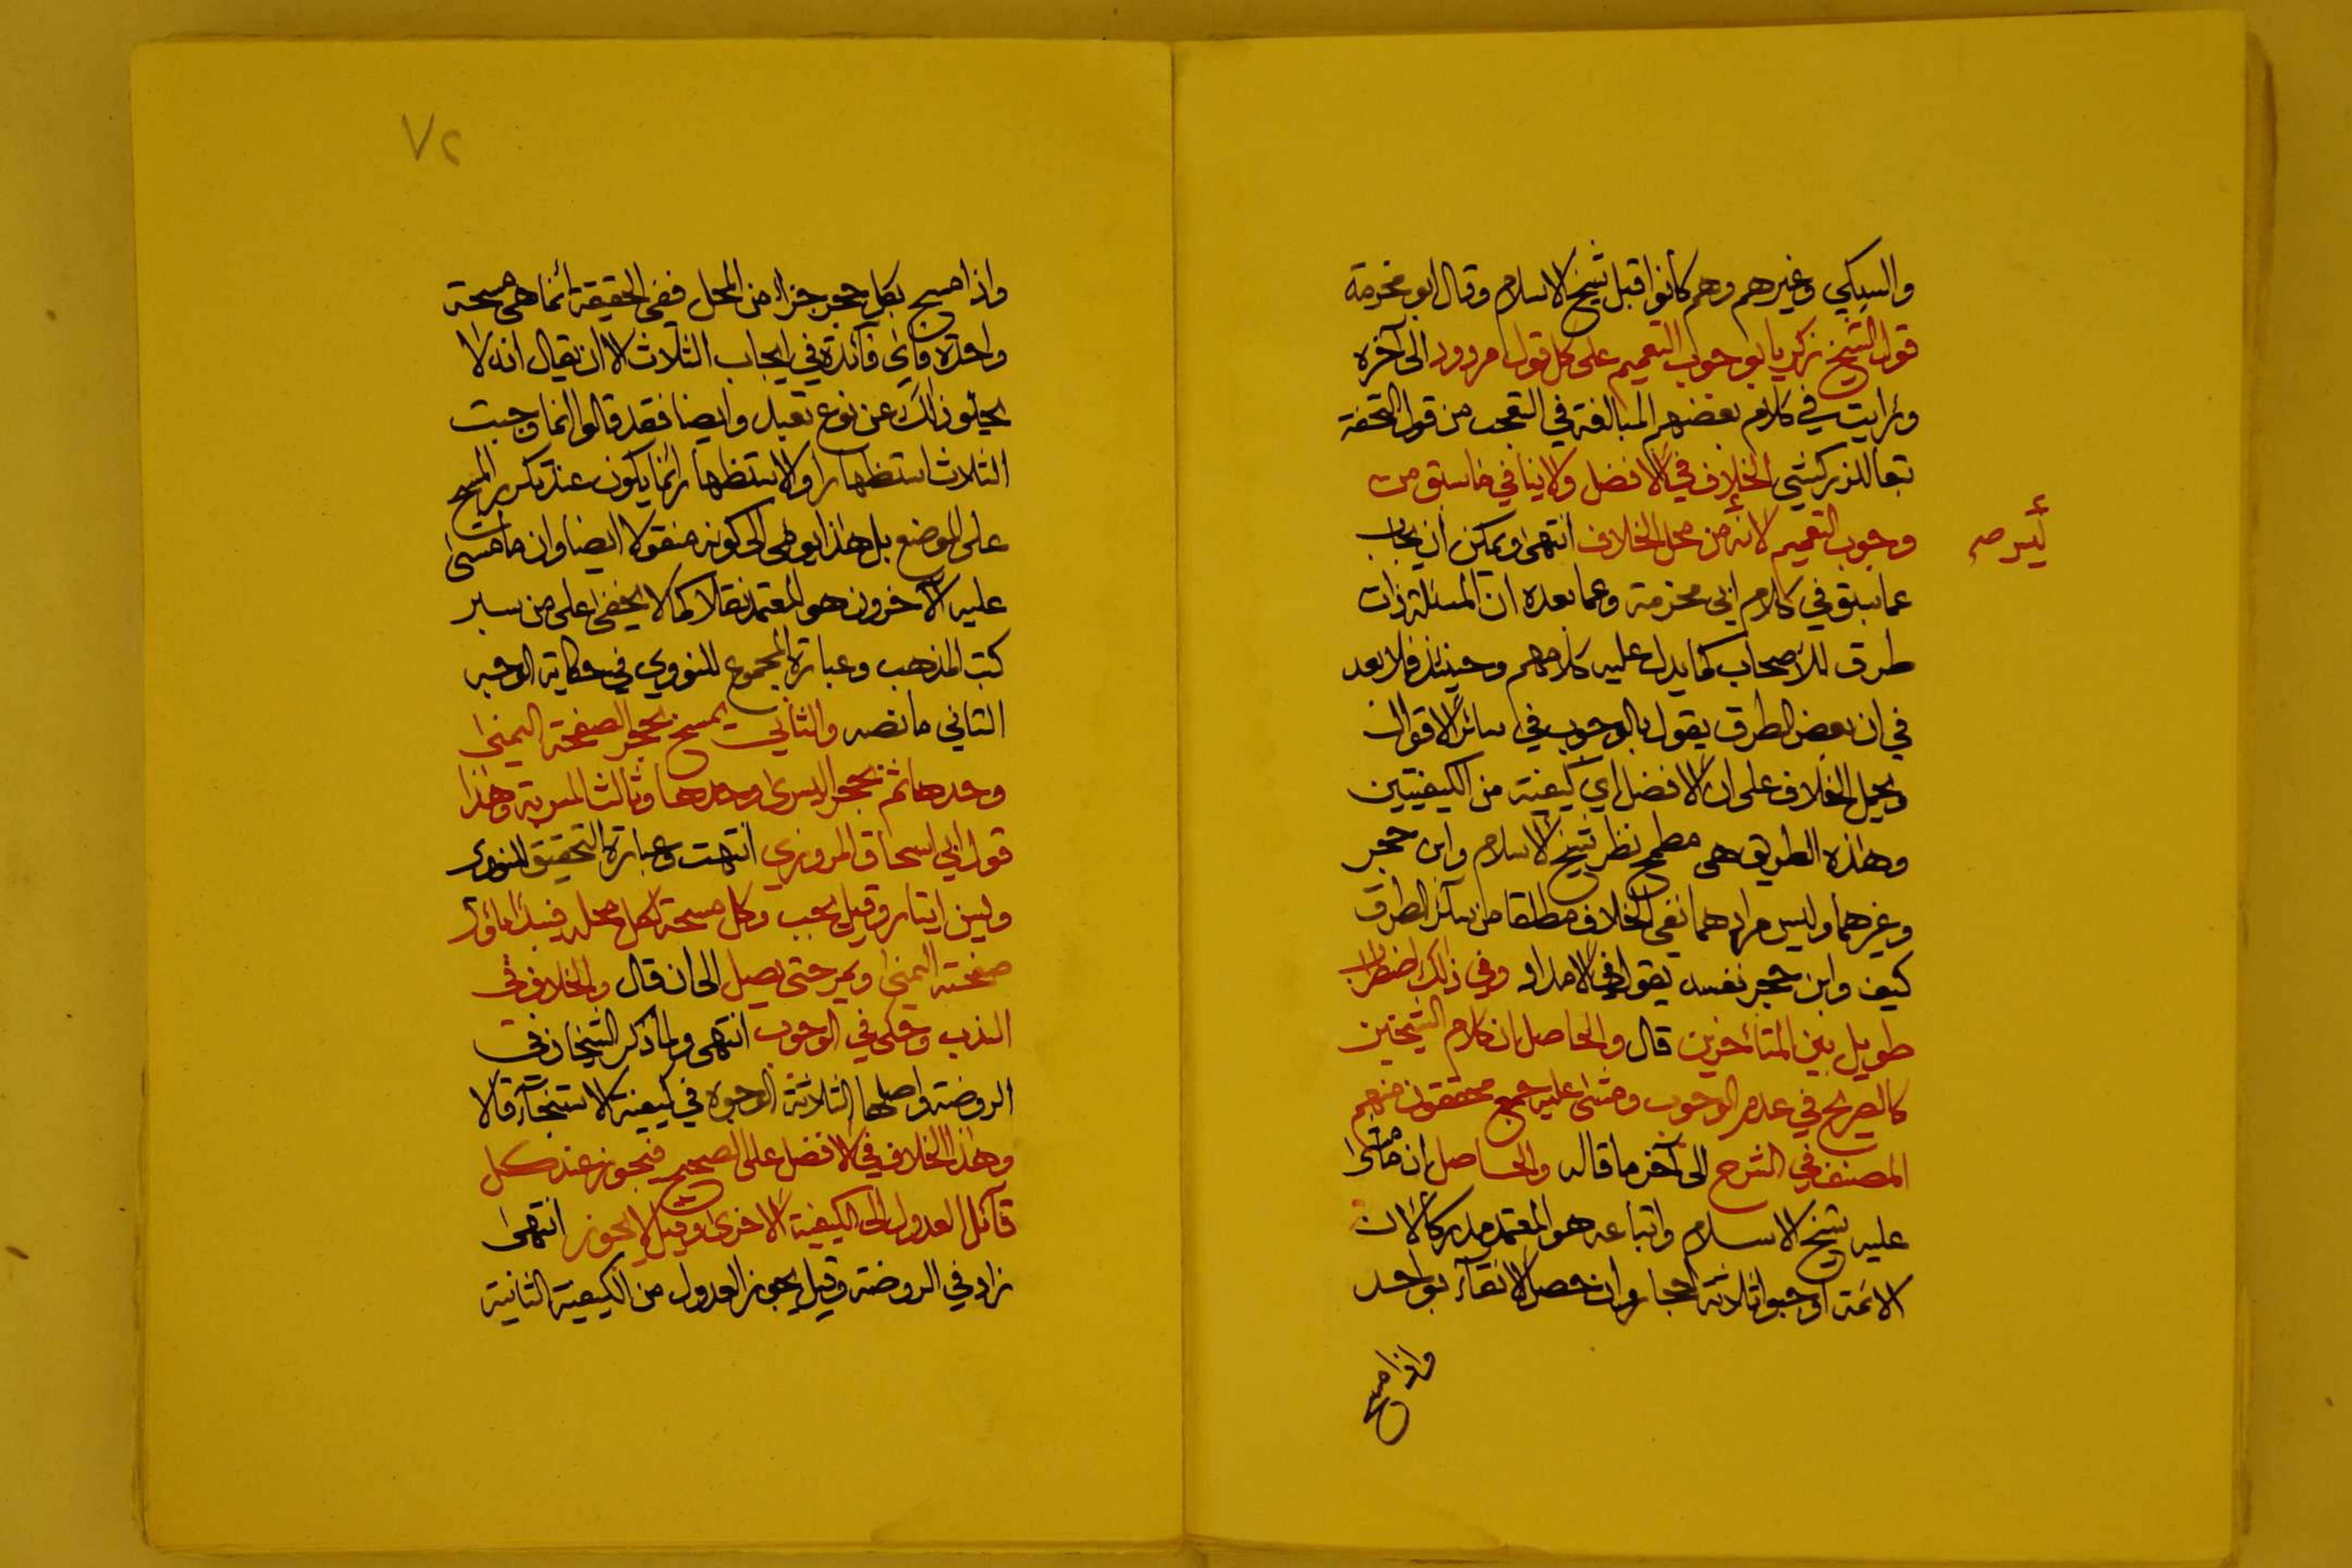 والسبكي وغيرهم وهم كانوا قبل شيخ الاسلام وقال ابو مخرمة
قول الشيخ زكريا بوجوب التعميم على كل قول مردود الى آخره
ورايت في كلام بعضهم المبالغة في التعجب من قول التحفة
تبعا للزركشي الخلاف في الافضل ولا ينافي ما سبق من
وجوب التعميم لانه من محل الخلاف انتهى ويمكن ان يجاب
أيسر صح
عما سبق في كلام ابي مخرمة وعما بعده ان المسئلة ذات
طرق للاصحاب كما يدل عليه كلامهم وحينئذ فلا بعد
في ان بعض الطرق يقول بالوجوب في سائر الاقوال
ويحمل الخلاف على ان الافضل اي كيفية من الكيفيتين
وهذه الطريق هي مطمح نظر شيخ الاسلام وابن حجر
وغيرهما وليس مرادهما نفي الخلاف مطلقا من سائر الطرق
كيف وابن حجر نفسه يقول في الامداد وفي ذلك اضطراب
طويل بين المتأخرين قال والحاصل ان كلام الشيخين
كالصريح في عدم الوجوب ومشى عليه جمع محققون منهم
المصنف في الشرح الى آخر ما قاله والحاصل ان ما مشى
عليه شيخ الاسلام واتباعه هو المعتمد مدركا لان
الائمة اوجبوا ثلاثة احجار وان حصل الانقاء بواحد
واذا مسح
٧٢
واذا مسح بكل حجر جزاء من المحل ففي الحقيقة انما هي مسحة
واحدة فاي فائدة في ايجاب الثلاث الا ان يقال انه لا
يخلو ذلك عن نوع تعبد وايضا فقد قالوا انما وجبت
الثلاث استظهارا والاستظهار انما يكون عند تكرير المسح
على الموضع بل هذا يومي الى كونه منقولا ايضا وان ما مشى
عليه الآخرون هو المعتمد نقلا كما لا يخفى على من سبر
كتب المذهب وعبارة المجموع للنووي في حكاية الوجه
الثاني ما نصه والثاني يمسح بحجر الصفحة اليمنى
وحدها ثم بحجر اليسرى وحدها وثالث المسربة وهذا
قول ابي اسحاق المروزي انتهت وعبارة التحقيق للنووي
وليس ايتار وقيل يجب وكل مسحة لكل محله فيبدا باول
صفحته اليمنى ويمر حتى يصيل الى ان قال والخلاف في
الندب وحكى في الوجوب انتهى ولما ذكر الشيخان في
الروضة واصلها الثلاثة الوجوه في كيفية الاستنجآء قالا
وهذا الخلاف في الافضل على الصحيح فيجوز عند كل
قآئل العدول الى الكيفية الاخرى وقيل لا يجوز انتهى
زاد في الروضة وقيل يجوز العدول من الكيفية الثانية